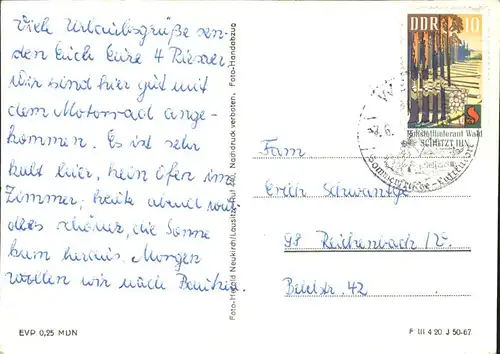 Viele Urlaubsgrüße sen-
den Euch Eure 4 Riesaer
Wir sind hier gut mit
dem Motorrad ange-
kommen. Es ist sehr
kalt hier, kein Ofen im
Zimmer, heute abend wur-
de es schöner, die Sonne
kam heraus. Morgen
wollen wir nach Bautzen.
Foto-Herold Neukirch/Lausitz, Ruf 440, Nachdruck verboten, Foto-Handabzug
DDR 10
Rohstofflieferant Wald
SCHÜTZT IHN
Fam
Erich
98 Reichenbach /V.
42
EVP 0,25 MDN
F III 4 20 J 50-67